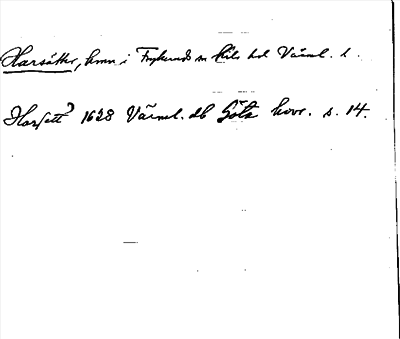 Harsätter, hmn i Frykerud sn Kils hd Värml. l.
Harsett 1628 Värml. db Göta hovr. s. 14.